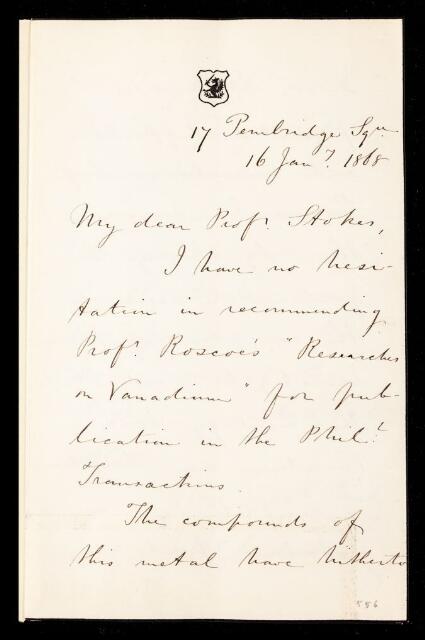 17 Pembridge Sqre
16 Jany. 1868
My dear Profr. Stokes,
I have no hesi-
tation in recommending
Profr. Roscoe's "Researches
on Vanadium" for pub-
lication in the Phill.
Transactions.
The compounds of
this metal have hitherto
556